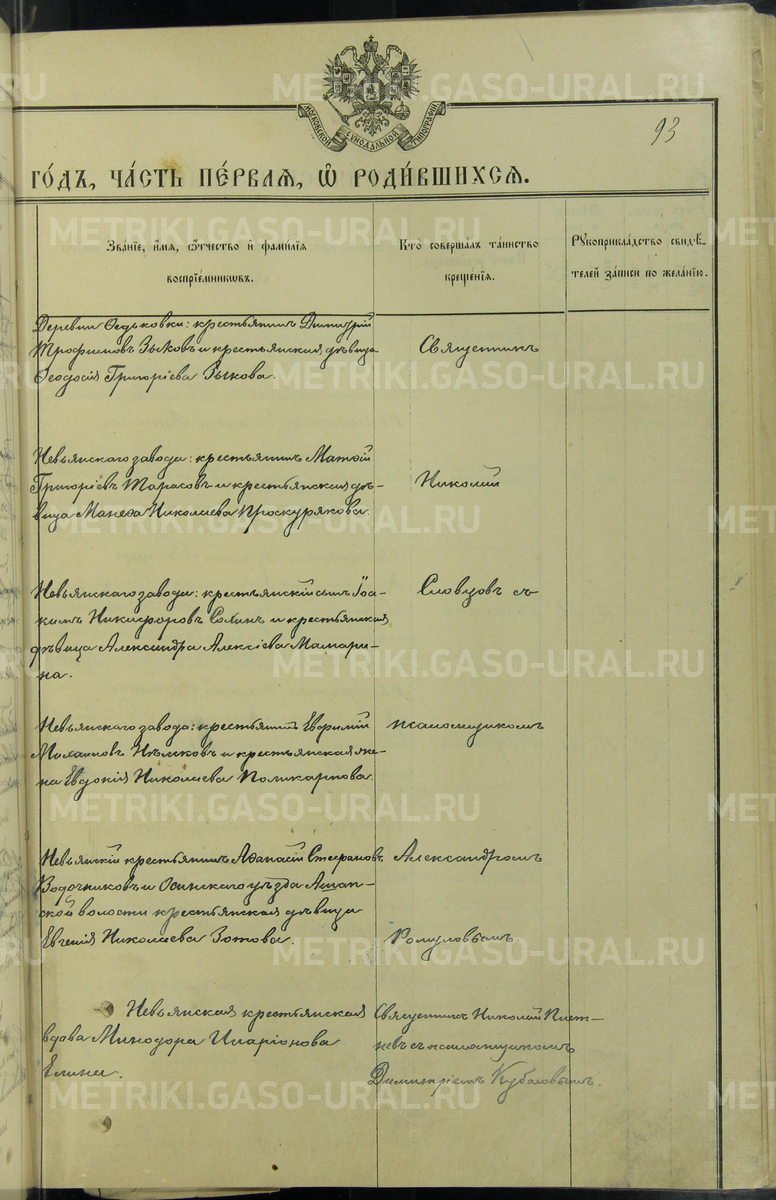 МОСКОВСКОЙ СУНОДАЛЬНОЙ ТИПОГРАФІИ
93
ГО́ДЪ, ЧА́СТЬ ПЕ́РВАЯ, Ѡ РОДИ́ВШИХСЯ.
Зва́нїе, и҆́мѧ, ѻ҆́тчество и҆ фами́лїѧ
воспрїе́мникѡвъ.
Кто̀ соверша́лъ та́инство
креще́нїѧ.
Рꙋкоприкла́дство свидѣ́-
телей за́писи по жела́нїю.
Деревни Федьковки: крестьянинъ Димитрій
Трофимовъ Зыковъ и крестьянская дѣвица
Ѳеодосія Григоріева Зыкова.
Священникъ
Невьянскаго завода: крестьянинъ Матѳій
Григоріевъ Тарасовъ и крестьянская дѣ-
вица Николаева Проскурякова.
Николай
Невьянскаго завода: крестьянскій сынъ Іоа-
кимъ Никифоровъ Сохинъ и крестьянская
дѣвица Александра Алексіева Мамари-
на.
Словцовъ съ
Невьянскаго завода: крестьянинъ Евфимій
и крестьянская же-
на Евдокія Николаева Поликарпова.
псаломщикомъ
Невьянскій крестьянинъ Аѳанасій Стефановъ
Водочниковъ и Осинскаго уѣзда Ашап-
ской волости крестьянская дѣвица
Евгенія Николаева Зотова.
Александромъ
Ромуловымъ.
Невьянская крестьянская
вдова Минодора Иларіонова
Елина.
Священникъ Николай Плет-
невъ съ псаломщикомъ
Димитріемъ Кубасовымъ.
METRIKI.GASO-URAL.RU